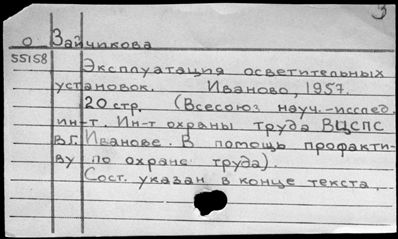 З
О Зайчикова
55158
Эксплуатация осветительных
установок. Иваново, 1957.
20 стр. (Всесоюз науч.-исслед.
ин-т. Ин-т охраны труда ВЦСПС
в г. Иванове. В помощь профакти-
ву по охране труда).
Сост. указан в конце текста.